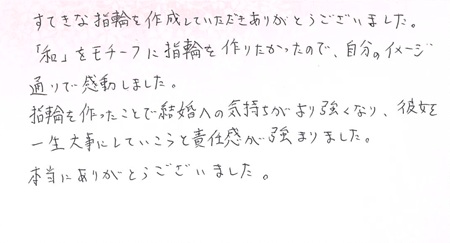 すてきな指輪を作成していただきありがとうございました。
「和」をモチーフに指輪を作りたかったので、自分のイメージ
通りで感動しました。
指輪を作ったことで結婚への気持ちがより強くなり、彼女を
一生大事にしていこうと責任感が強まりました。
本当にありがとうございました。